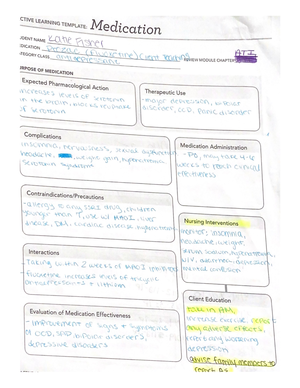 ACTIVE LEARNING TEMPLATE: Medication
STUDENT NAME Katie Fisher
MEDICATION Prozac (fluoxetine) Client Teaching
CATEGORY CLASS antidepressant REVIEW MODULE CHAPTER ATI
PURPOSE OF MEDICATION
Expected Pharmacological Action
increases levels of serotonin
in the brain, blocks reuptake
of serotonin
Therapeutic Use
major depression, bipolar
disorder, OCD, panic disorder
Complications
insomnia, nervousness, sexual dysfunction
headache, weight gain, hyponatremia
serotonin syndrome
Medication Administration
- PO, may take 4-6
weeks to reach clinical
effectiveness
Contraindications/Precautions
- allergy to any SSRI drug, children
younger than 7, use w/ MAOI, liver
disease, DM, cardiac disease,
Nursing Interventions
monitor: insomnia,
headache, weight,
serum sodium,
Interactions
Taking within 2 weeks of MAOI
fluoxetine increases levels of tricyclic
antidepressants + lithium
Evaluation of Medication Effectiveness
- improvement of signs + symptoms
of OCD, bipolar disorders,
depressive disorders
Client Education
take in AM,
exercise, report
any adverse effects,
worsening
depression
advise family members to